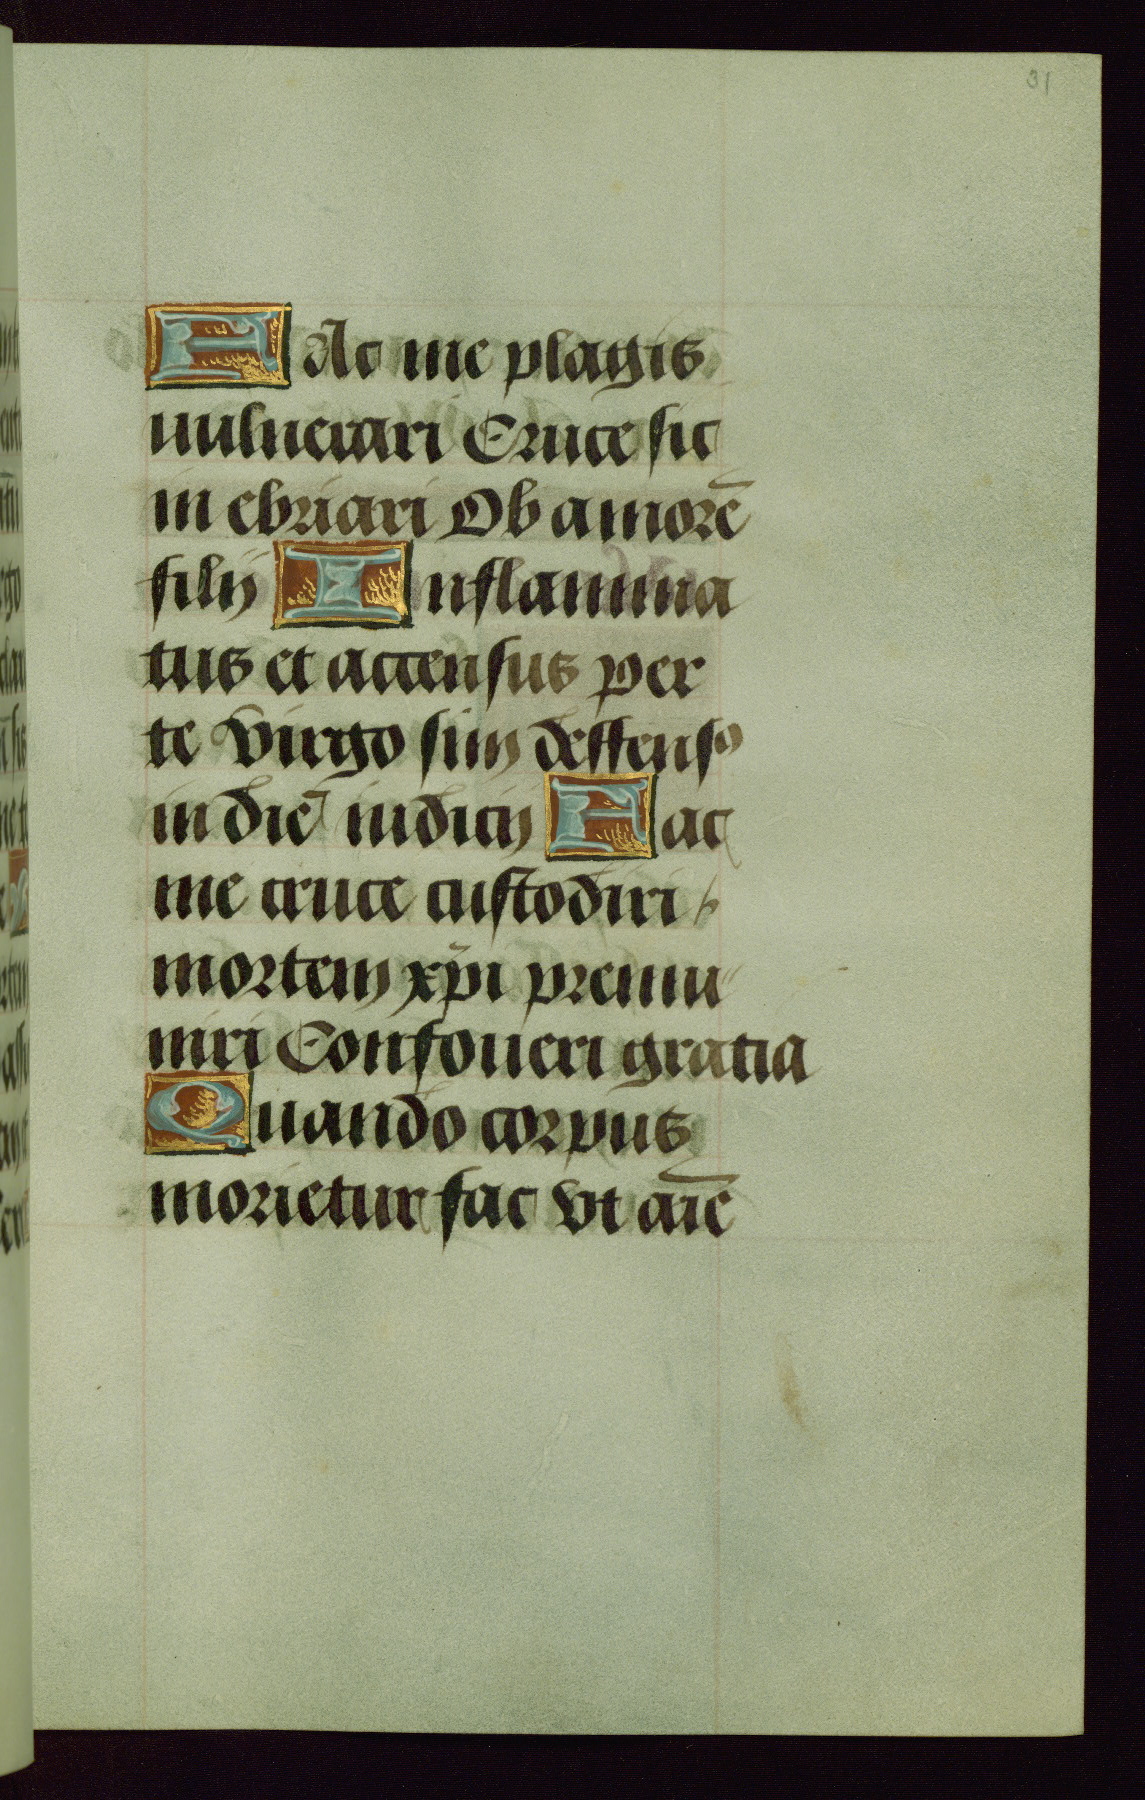 31
FAc me plagis
uulnerari Cruce sic
in ebriari Ob amorē
filij Inflamma
tus et accensus per
te Virgo sim deffensꝰ
in die iudicij Fac
me cruce custodiri
mortem xp̄i premu
niri Confoueri gratia
Quando corpus
morietur fac vt aīe